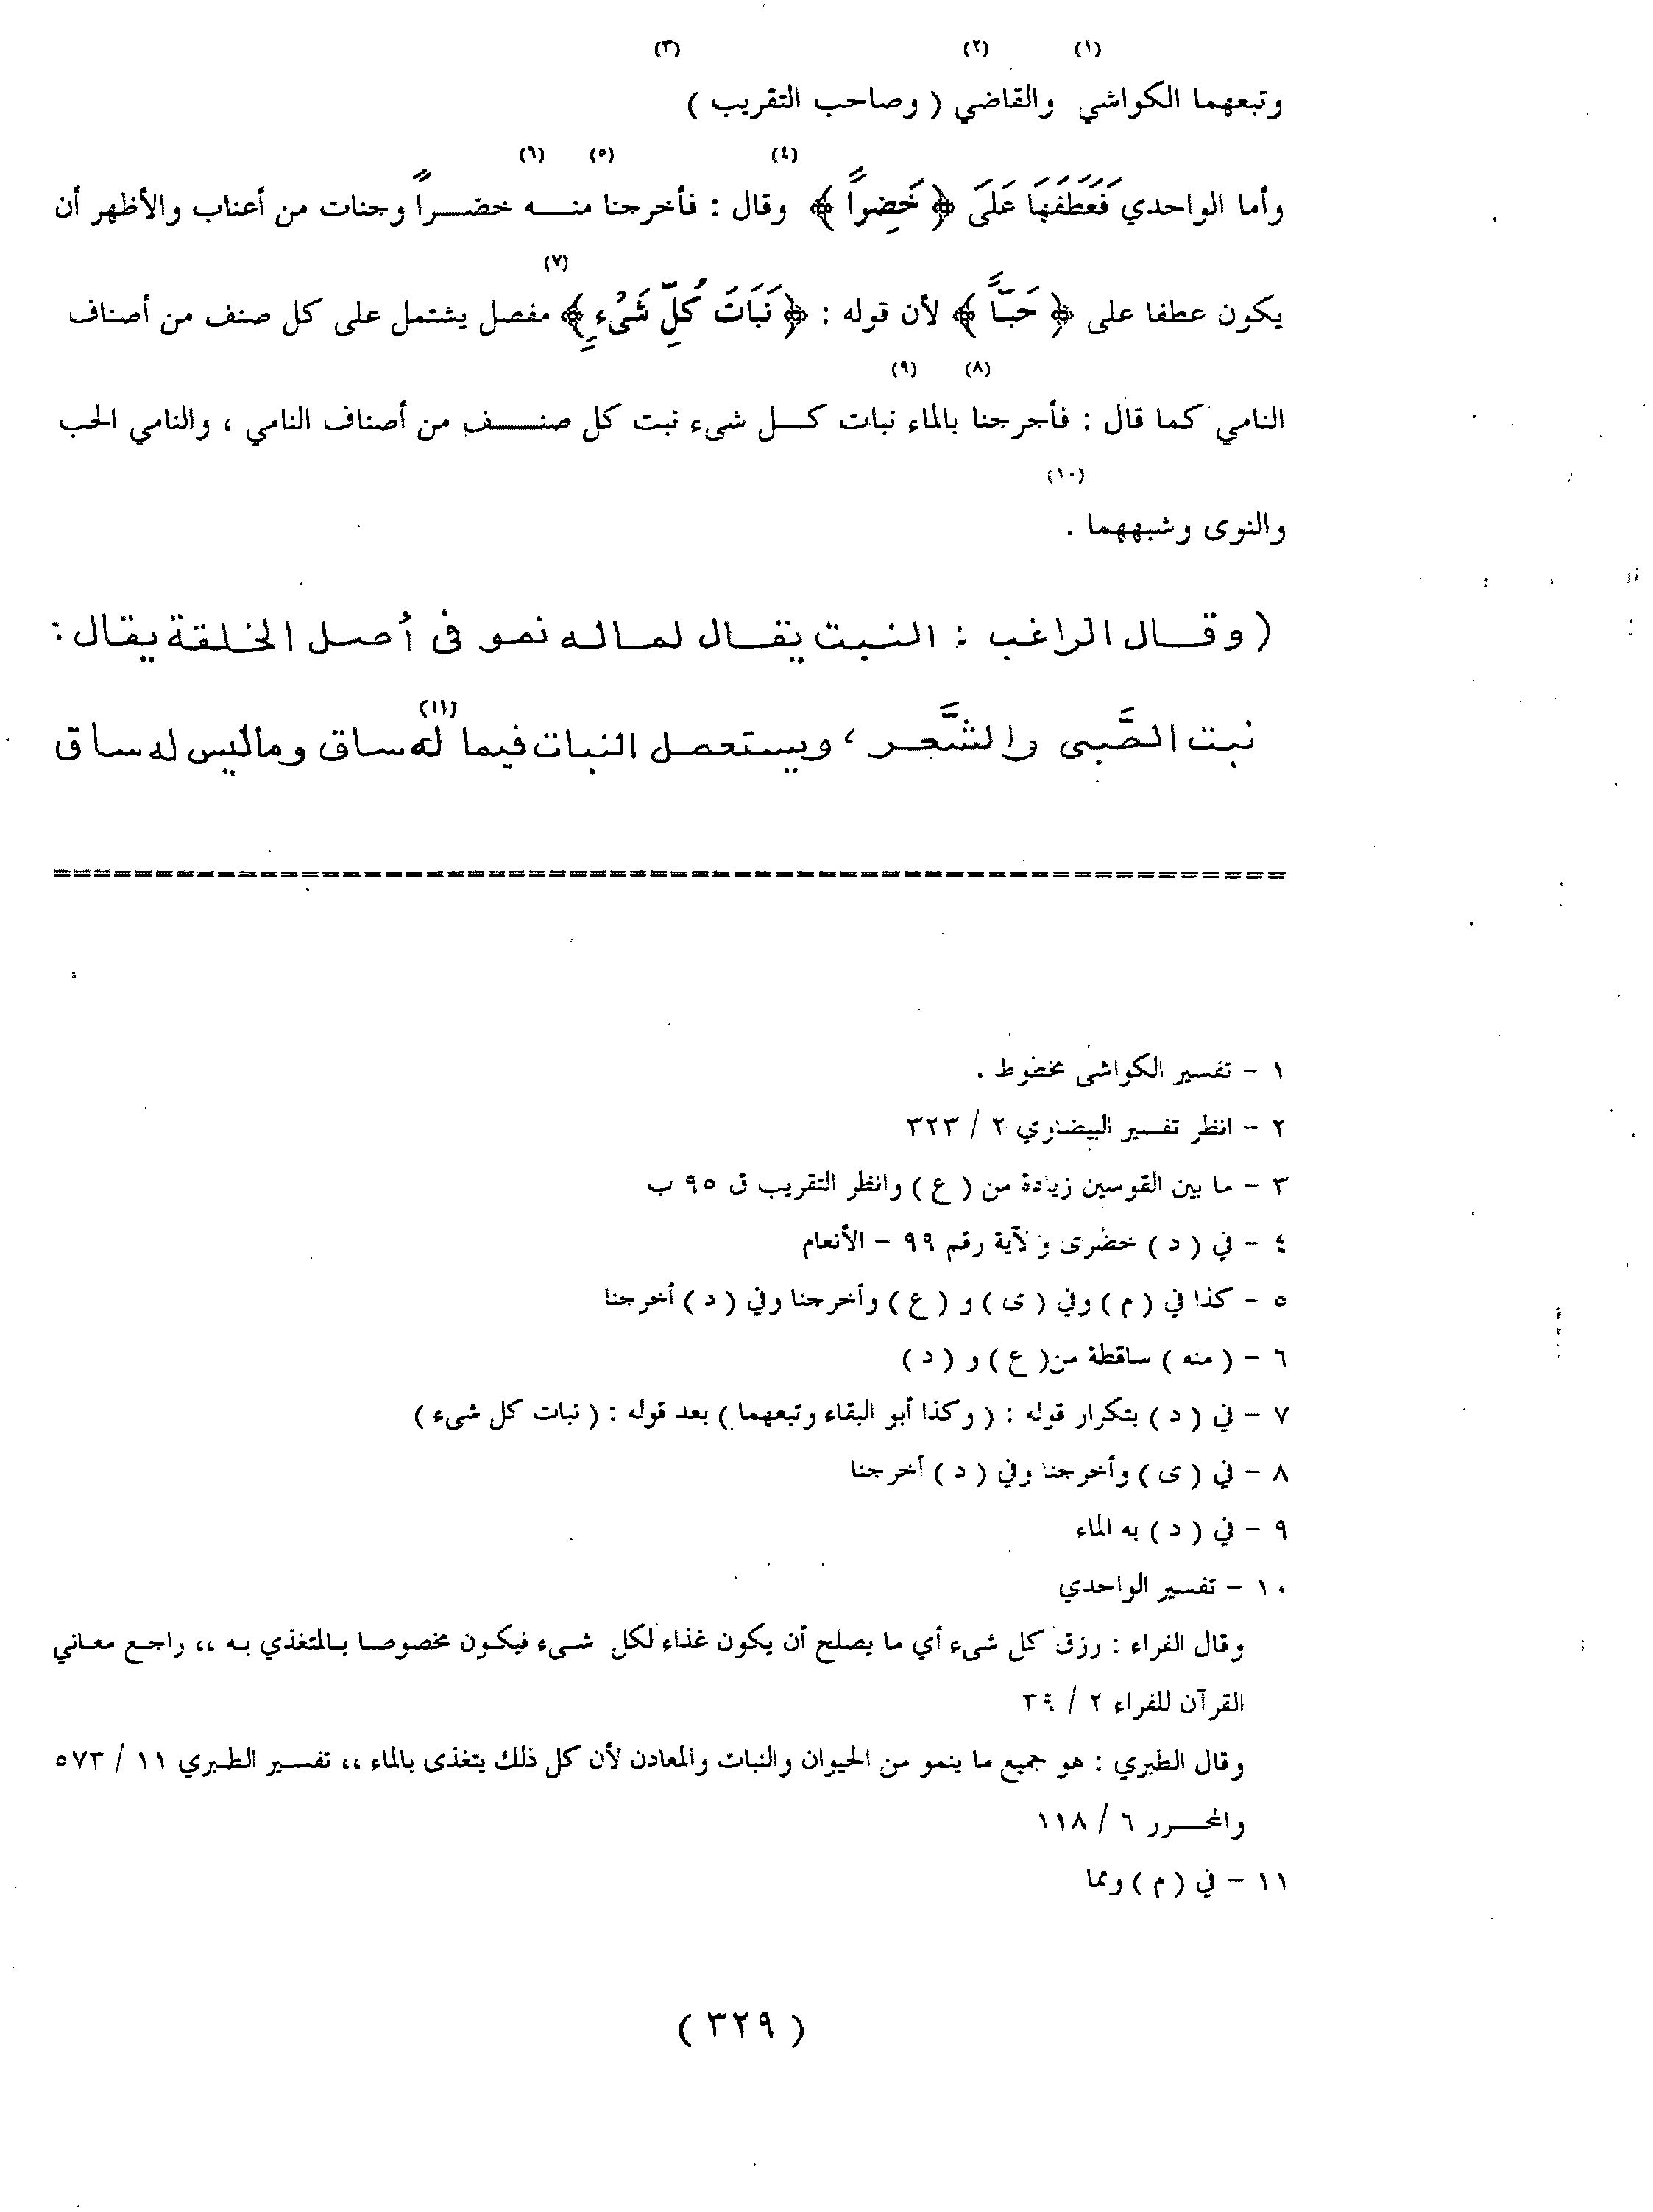 (١) (٢) (٣)
وتبعهما الكواشي والقاضي ( وصاحب التقريب )
(٤) (٥) (٦)
وأما الواحدي فَعَطَفَهَا عَلَى ﴿ خَضِراً ﴾ وقال : فأخرجنا منه خضراً وجنات من أعناب والأظهر أن
(٧)
يكون عطفا على ﴿ حَبّاً ﴾ لأن قوله : ﴿ نَبَاتَ كُلِّ شَىْءٍ ﴾ مفصل يشتمل على كل صنف من أصناف
(٨) (٩)
النامي كما قال : فأجرجنا بالماء نبات كل شىء نبت كل صنف من أصناف النامي ، والنامي الحب
(١٠)
والنوى وشبههما .
( وقال الراغب : النبت يقال لماله نمو فى أصل الخلقة يقال :
(١١)
نبت الصَّبى والشَّعر ، ويستعمل النبات فيما له ساق وماليس له ساق
==========================================================
١ - تفسير الكواشى مخضوط .
٢ - انظر تفسير البيضاوي ٢ / ٣٢٣
٣ - ما بين القوسين زيادة من ( ع ) وانظر التقريب ق ٩٥ ب
٤ - في ( د ) خضرى ولآية رقم ٩٩ - الأنعام
٥ - كذا في ( م ) وفي ( ى ) و ( ع ) وأخرجنا وفي ( د ) أخرجنا
٦ - ( منه ) ساقطة من( ع ) و ( د )
٧ - في ( د ) بتكرار قوله : ( وكذا أبو البقاء وتبعهما ) بعد قوله : ( نبات كل شىء )
٨ - في ( ى ) وأخرجنا وفي ( د ) أخرجنا
٩ - في ( د ) به الماء
١٠ - تفسير الواحدي
وقال الفراء : رزق كل شىء أي ما يصلح أن يكون غذاء لكل شىء فيكون مخصوصا بالمتغذي به ،، راجع معاني
القرآن للفراء ٢ / ٣٩
وقال الطبري : هو جميع ما ينمو من الحيوان والنبات والمعادن لأن كل ذلك يتغذى بالماء ،، تفسير الطبري ١١ / ٥٧٣
والمحرر ٦ / ١١٨
١١ - في ( م ) ومما
( ٣٢٩ )